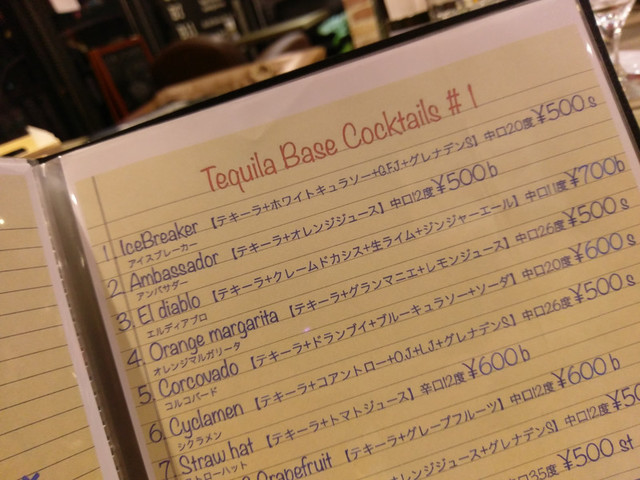 Tequila Base Cocktails #1
1. IceBreaker 【テキーラ+ホワイトキュラソー+G.F.J+グレナデンS】 中口20度 ¥500s
アイスブレーカー
2. Ambassador 【テキーラ+オレンジジュース】 中口12度 ¥500b
アンバサダー
3. El diablo 【テキーラ+クレームドカシス+生ライム+ジンジャーエール】 中口11度 ¥700b
エルディアブロ
4. Orange margarita 【テキーラ+グランマニエ+レモンジュース】 中口26度 ¥500s
オレンジマルガリータ
5. Corcovado 【テキーラ+ドランブイ+ブルーキュラソー+ソーダ】 中口20度 ¥600s
コルコバード
6. Cyclamen 【テキーラ+コアントロー+O.J+L.J+グレナデンS】 中口26度 ¥500s
シクラメン
7. Straw hat 【テキーラ+トマトジュース】 辛口12度 ¥600b
ストローハット
Grapefruit 【テキーラ+グレープフルーツ】 中口12度 ¥600b
レンジジュース+グレナデンS】 中口12度
中口35度 ¥500 st